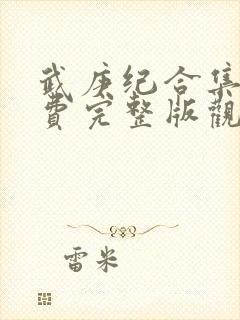 武庚纪合集
費完整版觀
雷米